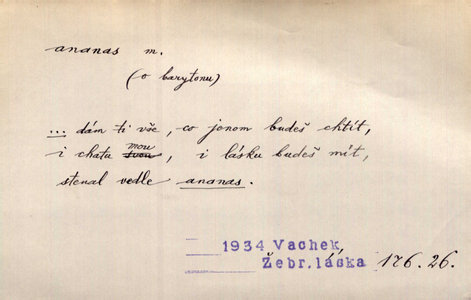 ananas m.
(o barytonu)
... dám ti vše, co jenom budeš chtít,
i chatu mou, i lásku budeš mít,
stenal vedle ananas.
1934 Vachek,
Žebr.láska 176.26.